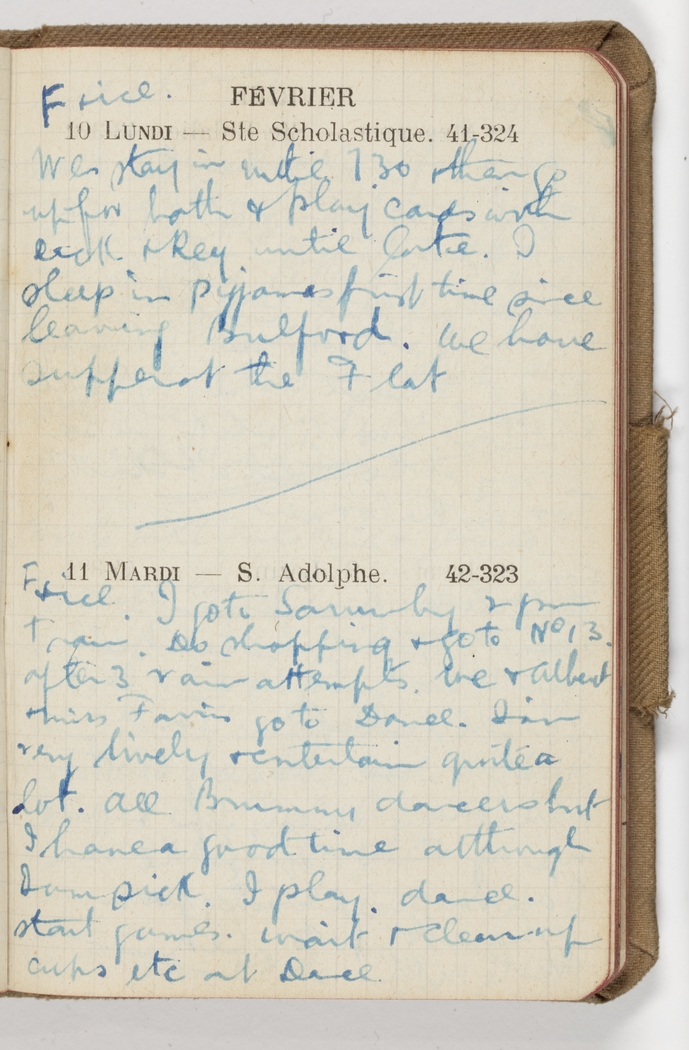 F & ice. FÉVRIER
10 LUNDI — Ste Scholastique. 41-324
We stay in until 730 & then go
up for bath & play cards with
& Key until late. I
sleep in pyjamas first time since
leaving Bulford. We have
supper at the Flat
11 MARDI — S. Adolphe. 42-323
F & ice. I go to 2 pm
Train. Do shopping & go to No 13.
after 3 vain attempts. We & Albert
& Miss go to Dance. I am
very lively & entertain quite a
lot. All Brummy dancers but
I have a good time although
I am sick. I play. dance.
start games. wait & clean up
cups etc at Dance